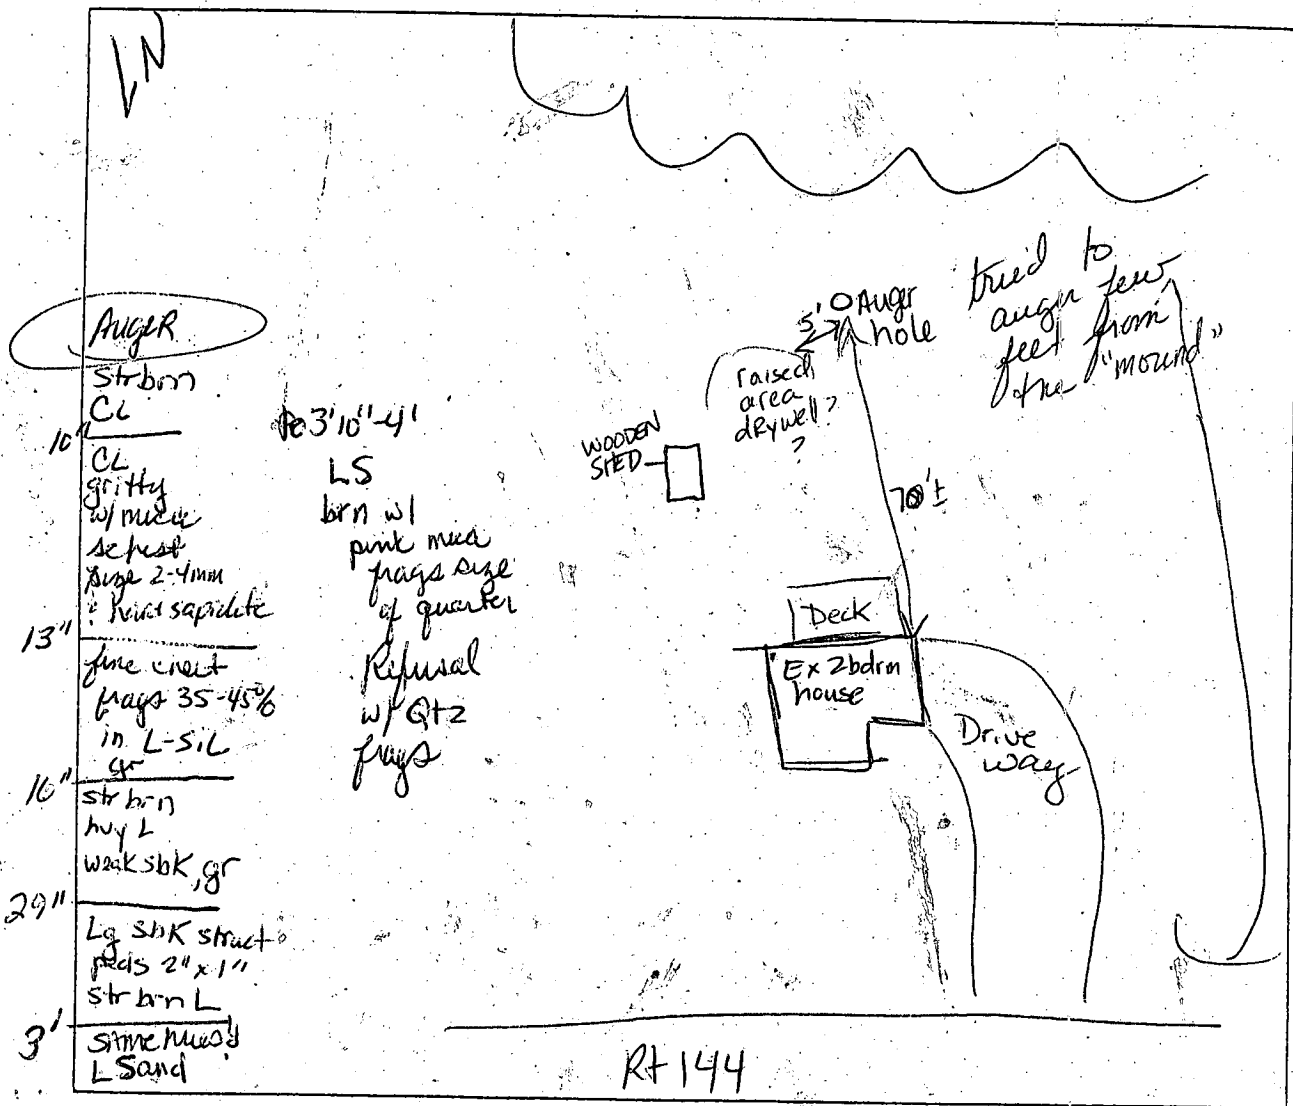 N
AUGER
strbrn
CL
10"
CL
gritty
w/ mica
schist
size 2-4mm
13"
fine
frags 35-45%
in L-SiL
gr
16"
str brn
hvy L
weak sbk, gr
29"
Lg sbk struct
peds 2" x 1"
str brn L
3'
same
L Sand
3'10"-4'
LS
brn w/
pink mica
frags size
of quarter
Refusal
w/ Qtz
frags
WOODEN
SHED
raised
area
dRywell?
?
5'
Auger
hole
tried to
auger few
feet from
the "mound"
70'±
Deck
Ex 2bdrm
house
Drive
way
Rt 144